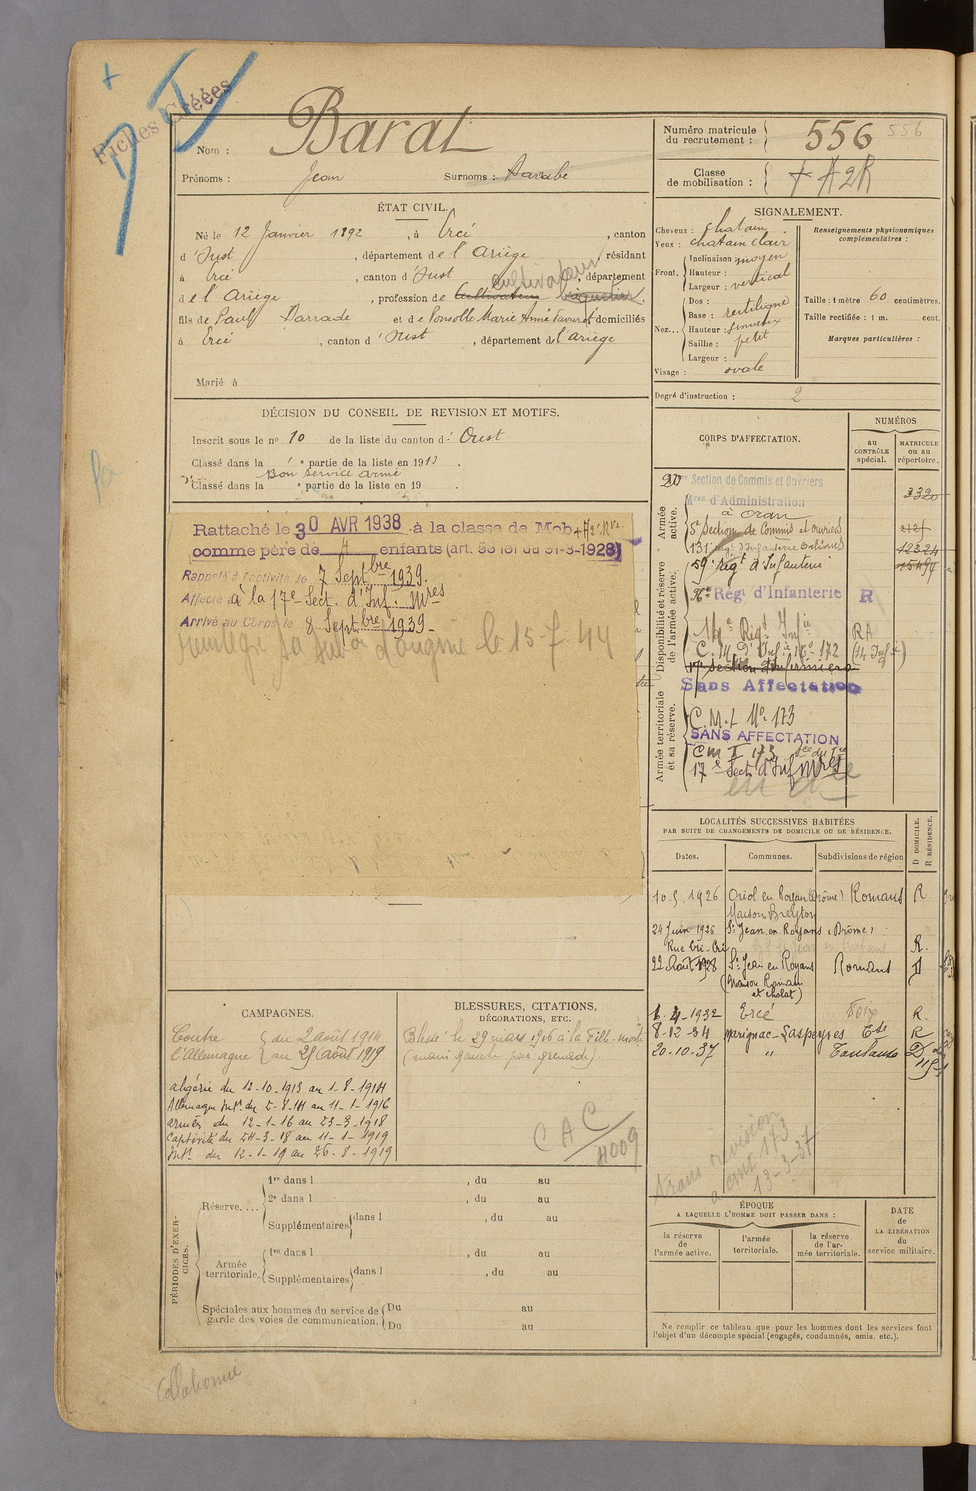 Fiches Créées
Nom : Barat
Prénoms : Jean Surnoms :
ÉTAT CIVIL.
Né le 12 Janvier 1892, à Ercé, canton
d'Oust, département de l'Ariège, résidant
à Ercé, canton d'Oust, département
cultivateur
de l'Ariège, profession de Cultivateur
fils de Paul et de Ponsolle Marie Anne domiciliés
à Ercé, canton d'Oust, département de l'Ariège
Marié à
DÉCISION DU CONSEIL DE REVISION ET MOTIFS.
Inscrit sous le n° 10 de la liste du canton d' Oust
Classé dans la 1e partie de la liste en 1913.
Bon service armé
Classé dans la e partie de la liste en 19 .
Rattaché le 30 AVR 1938 à la classe de Mob
comme père de 4 enfants (art. 58 loi du 31-3-1928)
Rappelé à l'activité le 7 Septbre 1939.
Affecté à la 17e Sect. d'Inf. Mres
Arrivé au Corps le 8 Septbre 1939
le 15-7-44
CAMPAGNES.
Contre l'Allemagne
du 2 août 1914
au 25 août 1919
algérie du 12-10-1913 au 1-8-1914
Allemagne Intr du 2-8-14 au 11-1-1916
armées du 12-1-16 au 23-3-1918
Captivité du 24-3-18 au 11-1-1919
Intr du 12-1-19 au 25-8-1919
BLESSURES, CITATIONS,
DÉCORATIONS, ETC.
Blessé le 29 mars 1916 à la Fille-morte
(main gauche par grenade).
CAC
4009
PÉRIODES D'EXERCICES.
Réserve....
1re dans l , du au
2e dans l , du au
Supplémentaires dans l , du au
Armée territoriale.
1re dans l , du au
Supplémentaires dans l , du au
Spéciales aux hommes du service de garde des voies de communication.
Du au
Du au
Numéro matricule du recrutement : 556 556
Classe de mobilisation :
SIGNALEMENT.
Cheveux : chatain
Yeux : chatain clair
Front,
Inclinaison moyen
Hauteur :
Largeur : vertical
Nez...
Dos : rectiligne
Base :
Hauteur :
Saillie : petit
Largeur :
Visage : ovale
Renseignements physionomiques complémentaires :
Taille : 1 mètre 60 centimètres.
Taille rectifiée : 1 m. cent.
Marques particulières :
Degré d'instruction : 2
CORPS D'AFFECTATION.
NUMÉROS
au CONTRÔLE spécial.
MATRICULE ou au répertoire.
Armée active.
20e Section de Commis et Ouvriers
d'Administration
à Oran
3320
5e Section de Commis et ouvriers
131e
59e Régt d'Infanterie
Disponibilité et réserve de l'armée active.
Régt d'Infanterie R
14e Régt Infie RA
172
Sans Affectation
Armée territoriale et sa réserve.
173
SANS AFFECTATION
173
17e Sect. d'Inf Mres
LOCALITÉS SUCCESSIVES HABITÉES
PAR SUITE DE CHANGEMENTS DE DOMICILE OU DE RÉSIDENCE.
Dates. Communes. Subdivisions de région D DOMICILE. R RÉSIDENCE.
10.5.1926 Oriol en Royans (Drôme) Romans R
Maison Breyton
24 Juin 1926 St Jean en Royans (Drôme) R.
22 Août 1928 St Jean en Royans Romans D
(Maison Romain
et cholat)
6-4-1932 Ercé Foix R.
8-12-34 Marignac-Laspeyres R
20-10-37 " Toulouse D
173
13-3-37
ÉPOQUE
A LAQUELLE L'HOMME DOIT PASSER DANS :
la réserve de l'armée active.
l'armée territoriale.
la réserve de l'armée territoriale.
DATE de LA LIBÉRATION du service militaire.
Ne remplir ce tableau que pour les hommes dont les services font
l'objet d'un décompte spécial (engagés, condamnés, omis, etc.).